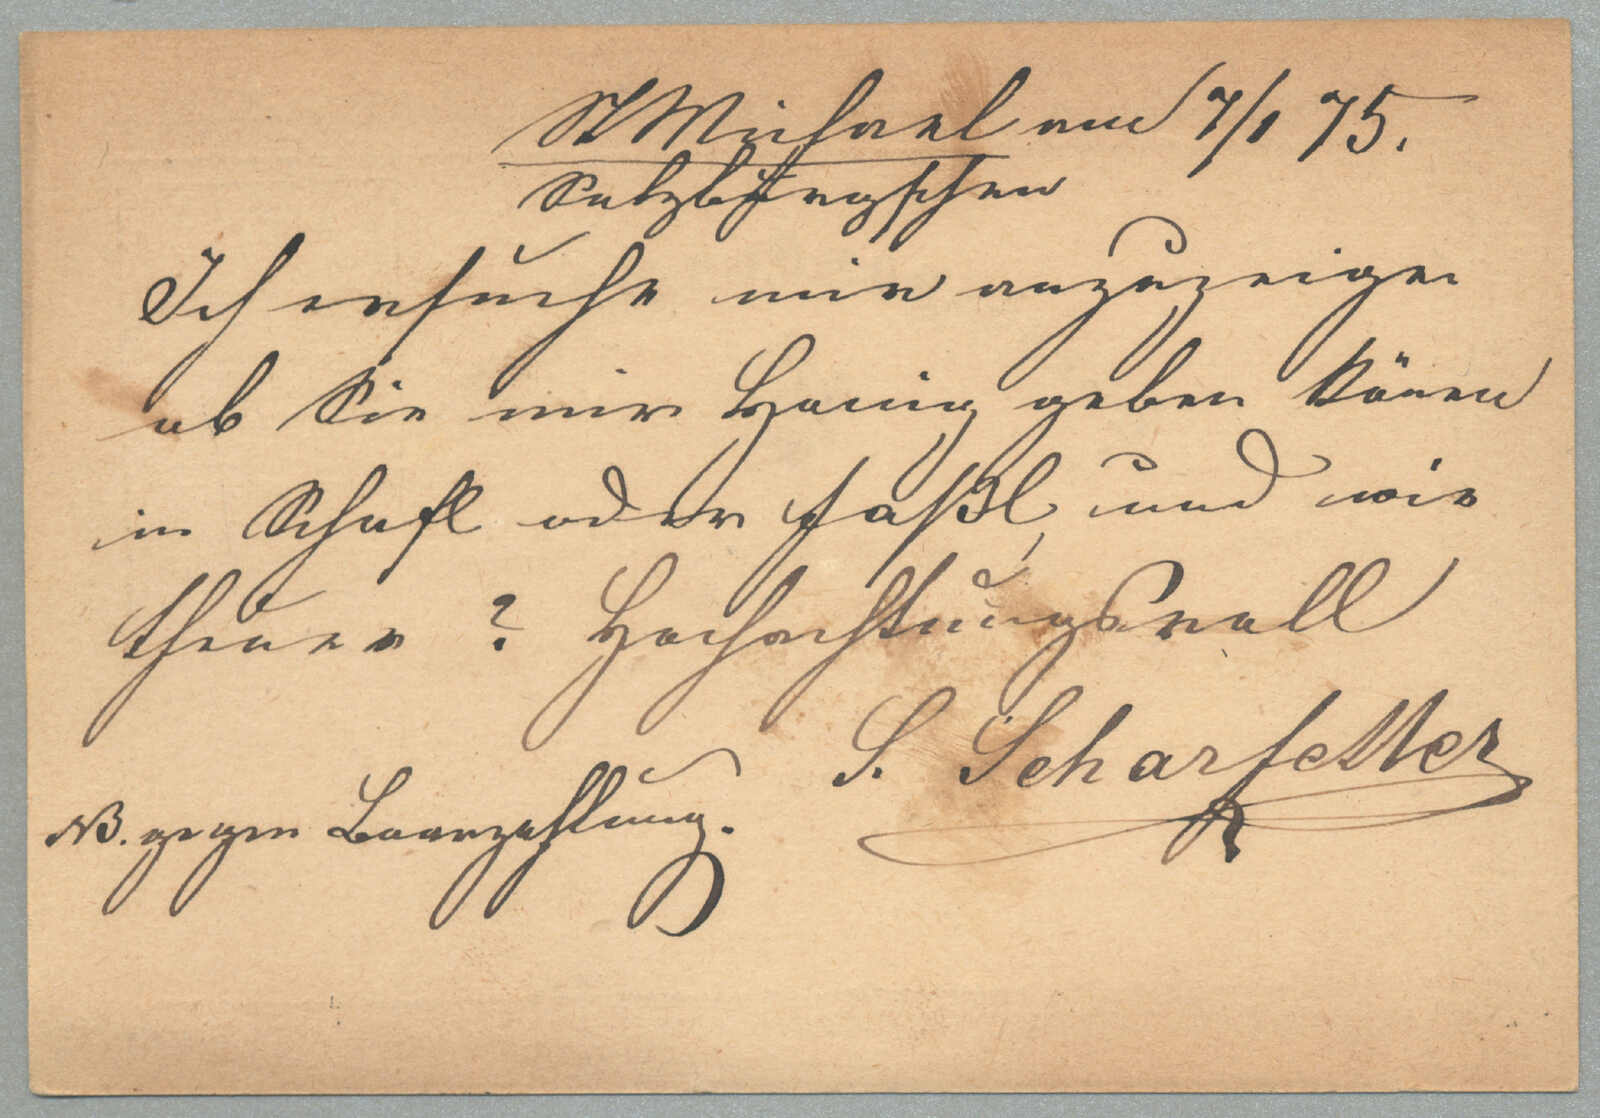 St Michael am 7/1 75.
Salzburgschen
Ich ersuche mir anzuzeigen
ob Sie mir Honig geben könen
in Schafl oder faßl, und wie
theuer ? Hochachtungsvoll
S. Scharfetter
NB. gegen Baarzahlung.